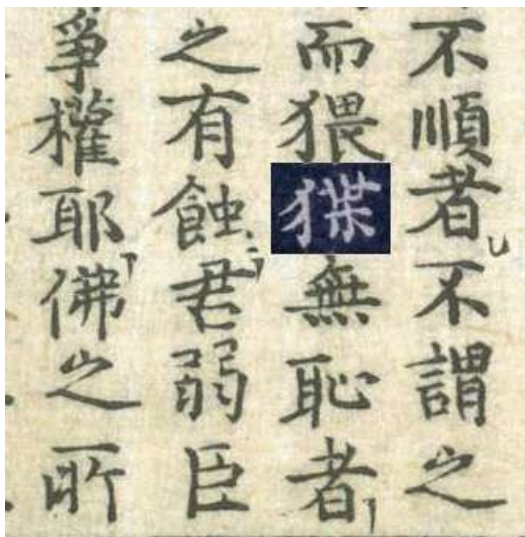 不順者不謂之
而猥無恥者
之有蝕君弱臣
爭權耶佛之所